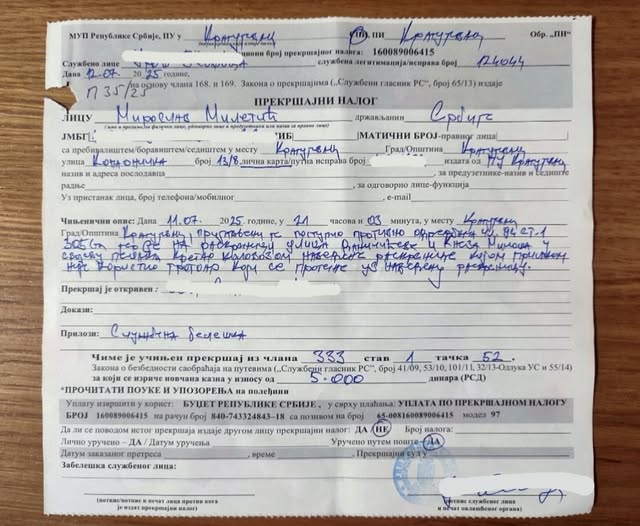 МУП Републике Србије, ПУ у Крагујевцу ПИ Крагујевац Обр. „ПИ“
број прекршајног налога: 160089006415
Службено лице службена легитимација/исправа број 124044
Дана 12.07 2025 године,
П 35/25 на основу члана 168. и 169. Закона о прекршајима („Службени гласник РС“, број 65/13) издаје
ПРЕКРШАЈНИ НАЛОГ
ЛИЦУ Мирослав Милетић држављанин Србије
(име и презиме физичког лица, одговорног лица и предузетника или назив за правно лице)
ЈМБГ ПИБ МАТИЧНИ БРОЈ-правног лица
са пребивалиштем/боравиштем/седиштем у месту Крагујевац Град/Општина Крагујевац
улица број 13/8 лична карта/путна исправа број издата од ПУ Крагујевац
назив и адреса послодавца , за предузетнике-назив и седиште
радње , за одговорно лице-функција
Уз пристанак лица, број телефона/мобилног , e-mail
Чињенични опис: Дана 11.07. 2025 године, у 21 часова и 03 минута, у месту Крагујевац
Град/Општина Крагујевац, је поступио противно одредби чл. ст. 1
на раскрсници улица и Кнеза Милоша у
својству пешака коловозом наведене раскрснице којом приликом
није користио тротоар који се протеже уз наведену раскрсницу.
Прекршај је откривен :
Докази:
Прилози: Службена белешка
Чиме је учињен прекршај из члана 333 став 1 тачка 52.
Закона о безбедности саобраћаја на путевима („Службени гласник РС“, број 41/09, 53/10, 101/11, 32/13-Одлука УС и 55/14)
за који се изриче новчана казна у износу од 5.000 динара (РСД)
*ПРОЧИТАТИ ПОУКЕ И УПОЗОРЕЊА на полеђини
Уплату извршити у корист: БУЏЕТ РЕПУБЛИКЕ СРБИЈЕ , у сврху плаћања: УПЛАТА ПО ПРЕКРШАЈНОМ НАЛОГУ
БРОЈ 160089006415 на рачун број 840-743324843-18 са позивом на број 65-008160089006415 модел 97
Да ли се поводом истог прекршаја издаје другом лицу прекршајни налог: ДА НЕ Број налога:
Лично уручено – ДА / Датум уручења Уручено путем поште ДА
Датум заказаног претреса , време , Прекршајни суд у
Забелешка службеног лица:
(потпис/потпис и печат лица против кога (потпис службеног лица
је издат прекршајни налог) и печат овлашћеног органа)